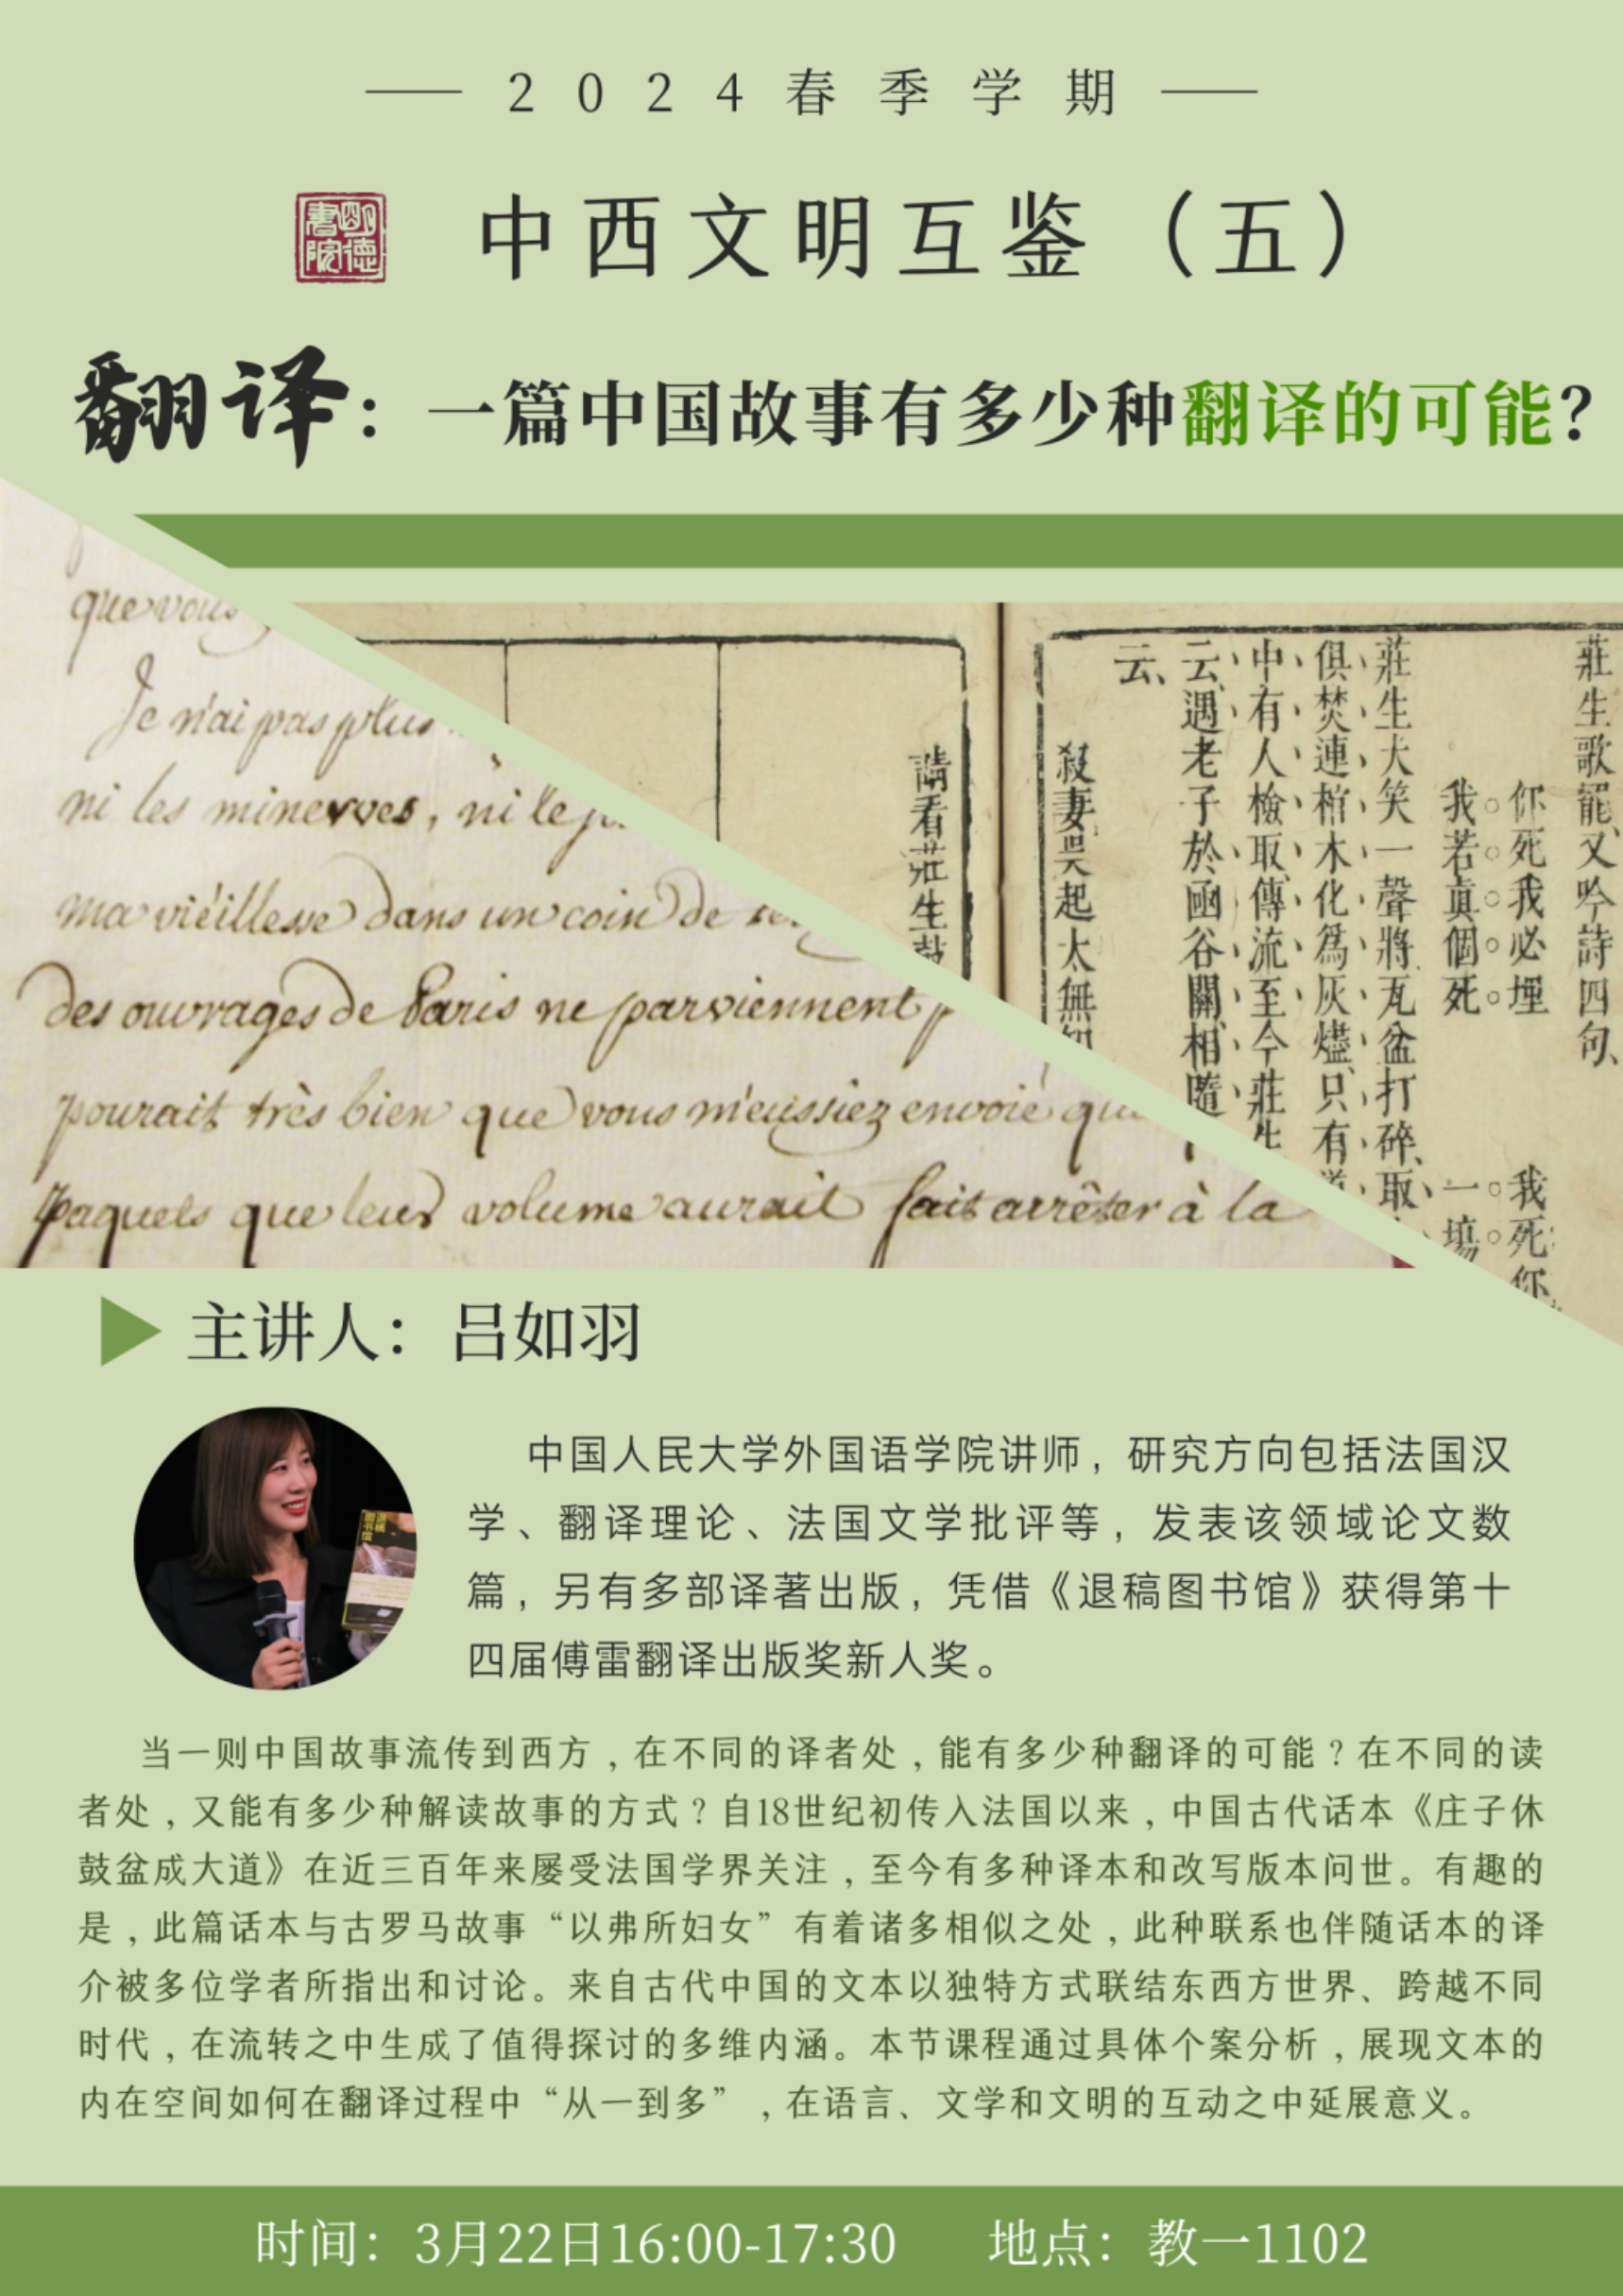 2024春季学期
明德書院
中西文明互鉴（五）
翻译：一篇中国故事有多少种翻译的可能？
que vous
Je n'ai pas plus
ni les minerves, ni le
ma viéillesse dans un coin de
des ouvrages de Paris ne parviennent
pourait très bien que vous m'eussiez envoié
paquets que leur volume aurait fait arrêter à la
莊生歌罷、又吟詩四句、
你死我必埋 我死你
我若真個死 一場
莊生大笑一聲將瓦盆打碎、取
俱焚連棺木化為灰燼、只有道
中有人檢取傳流至今莊生
云遇老子於函谷關相隨
云、
殺妻吳起太無知
請看莊生鼓
主讲人：吕如羽
退稿图书馆
中国人民大学外国语学院讲师，研究方向包括法国汉
学、翻译理论、法国文学批评等，发表该领域论文数
篇，另有多部译著出版，凭借《退稿图书馆》获得第十
四届傅雷翻译出版奖新人奖。
当一则中国故事流传到西方，在不同的译者处，能有多少种翻译的可能？在不同的读
者处，又能有多少种解读故事的方式？自18世纪初传入法国以来，中国古代话本《庄子休
鼓盆成大道》在近三百年来屡受法国学界关注，至今有多种译本和改写版本问世。有趣的
是，此篇话本与古罗马故事“以弗所妇女”有着诸多相似之处，此种联系也伴随话本的译
介被多位学者所指出和讨论。来自古代中国的文本以独特方式联结东西方世界、跨越不同
时代，在流转之中生成了值得探讨的多维内涵。本节课程通过具体个案分析，展现文本的
内在空间如何在翻译过程中“从一到多”，在语言、文学和文明的互动之中延展意义。
时间：3月22日16:00-17:30 地点：教一1102